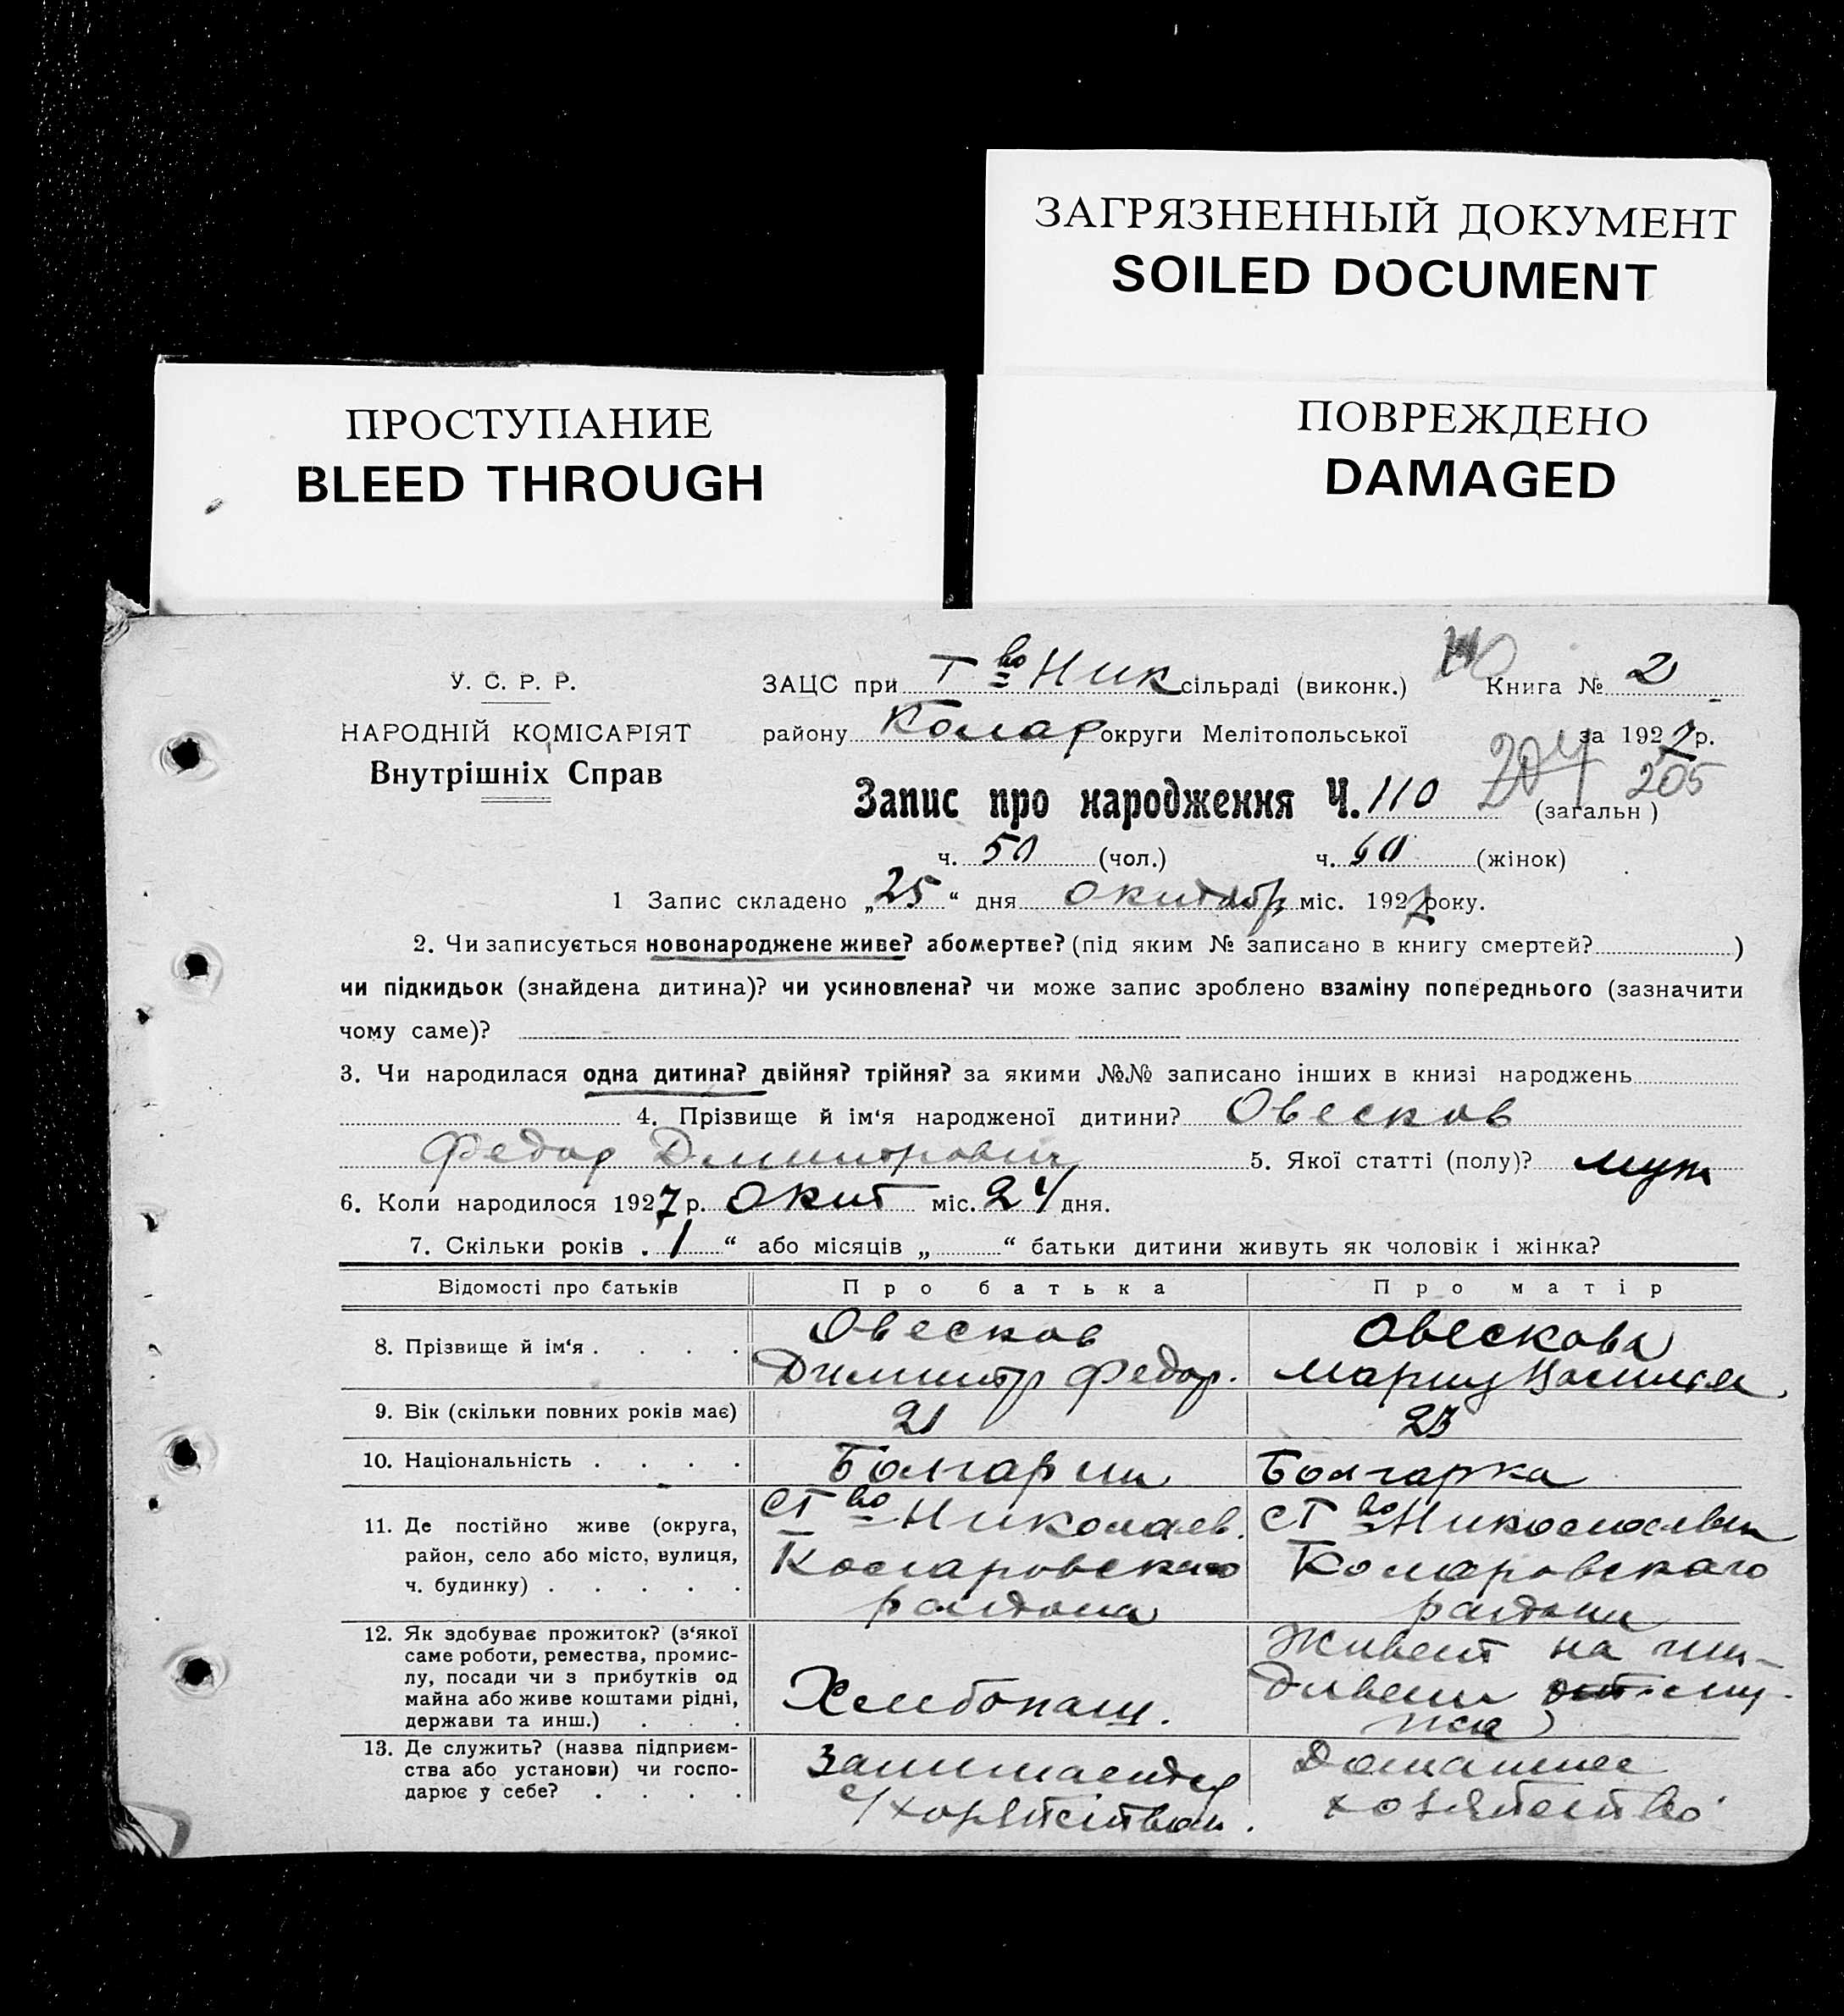 ЗАГРЯЗНЕННЫЙ ДОКУМЕНТ
SOILED DOCUMENT
ПРОСТУПАНИЕ
BLEED THROUGH
ПОВРЕЖДЕНО
DAMAGED
У. С. Р. Р.
НАРОДНІЙ КОМІСАРІЯТ
Внутрішніх Справ
ЗАЦС при Т во Ник сільраді (виконк.) Книга № 2
району Колар округи Мелітопольської за 1927 р.
204 205
Запис про народження Ч. 110 (загальн)
ч. 50 (чол.) ч. 60 (жінок)
1 Запис складено „25“ дня октября міс. 1927 року.
2. Чи записується новонароджене живе? або мертве? (під яким № записано в книгу смертей? )
чи підкидьок (знайдена дитина)? чи усиновлена? чи може запис зроблено взаміну попереднього (зазначити
чому саме)?
3. Чи народилася одна дитина? двійня? трійня? за якими №№ записано інших в книзі народжень
4. Прізвище й ім‘я народженої дитини? Овесков
Федор Дмитрович 5. Якої статті (полу)? муж
6. Коли народилося 1927 р. Окт міс. 24 дня.
7. Скільки років „1“ або місяців „ “ батьки дитини живуть як чоловік і жінка?
Відомості про батьків Про батька Про матір
8. Прізвище й ім‘я . . . . Овесков Димитр Федор. Овескова Мария
9. Вік (скільки повних років має) 21 23
10. Національність . . . . Болгарин Болгарка
11. Де постійно живе (округа, район, село або місто, вулиця, ч. будинку) . . . . . СТ во Николаев. Коларовского района СТ во Николаевка Коларовскаго района
12. Як здобуває прожиток? (з‘якої саме роботи, ремества, промислу, посади чи з прибутків од майна або живе коштами рідні, держави та инш.) . . . Хлебопаш. Живет на иждивении мужа
13. Де служить? (назва підприємства або установи) чи господарює у себе? . . . . Занимается с/хозяйством. Домашнее хозяйство